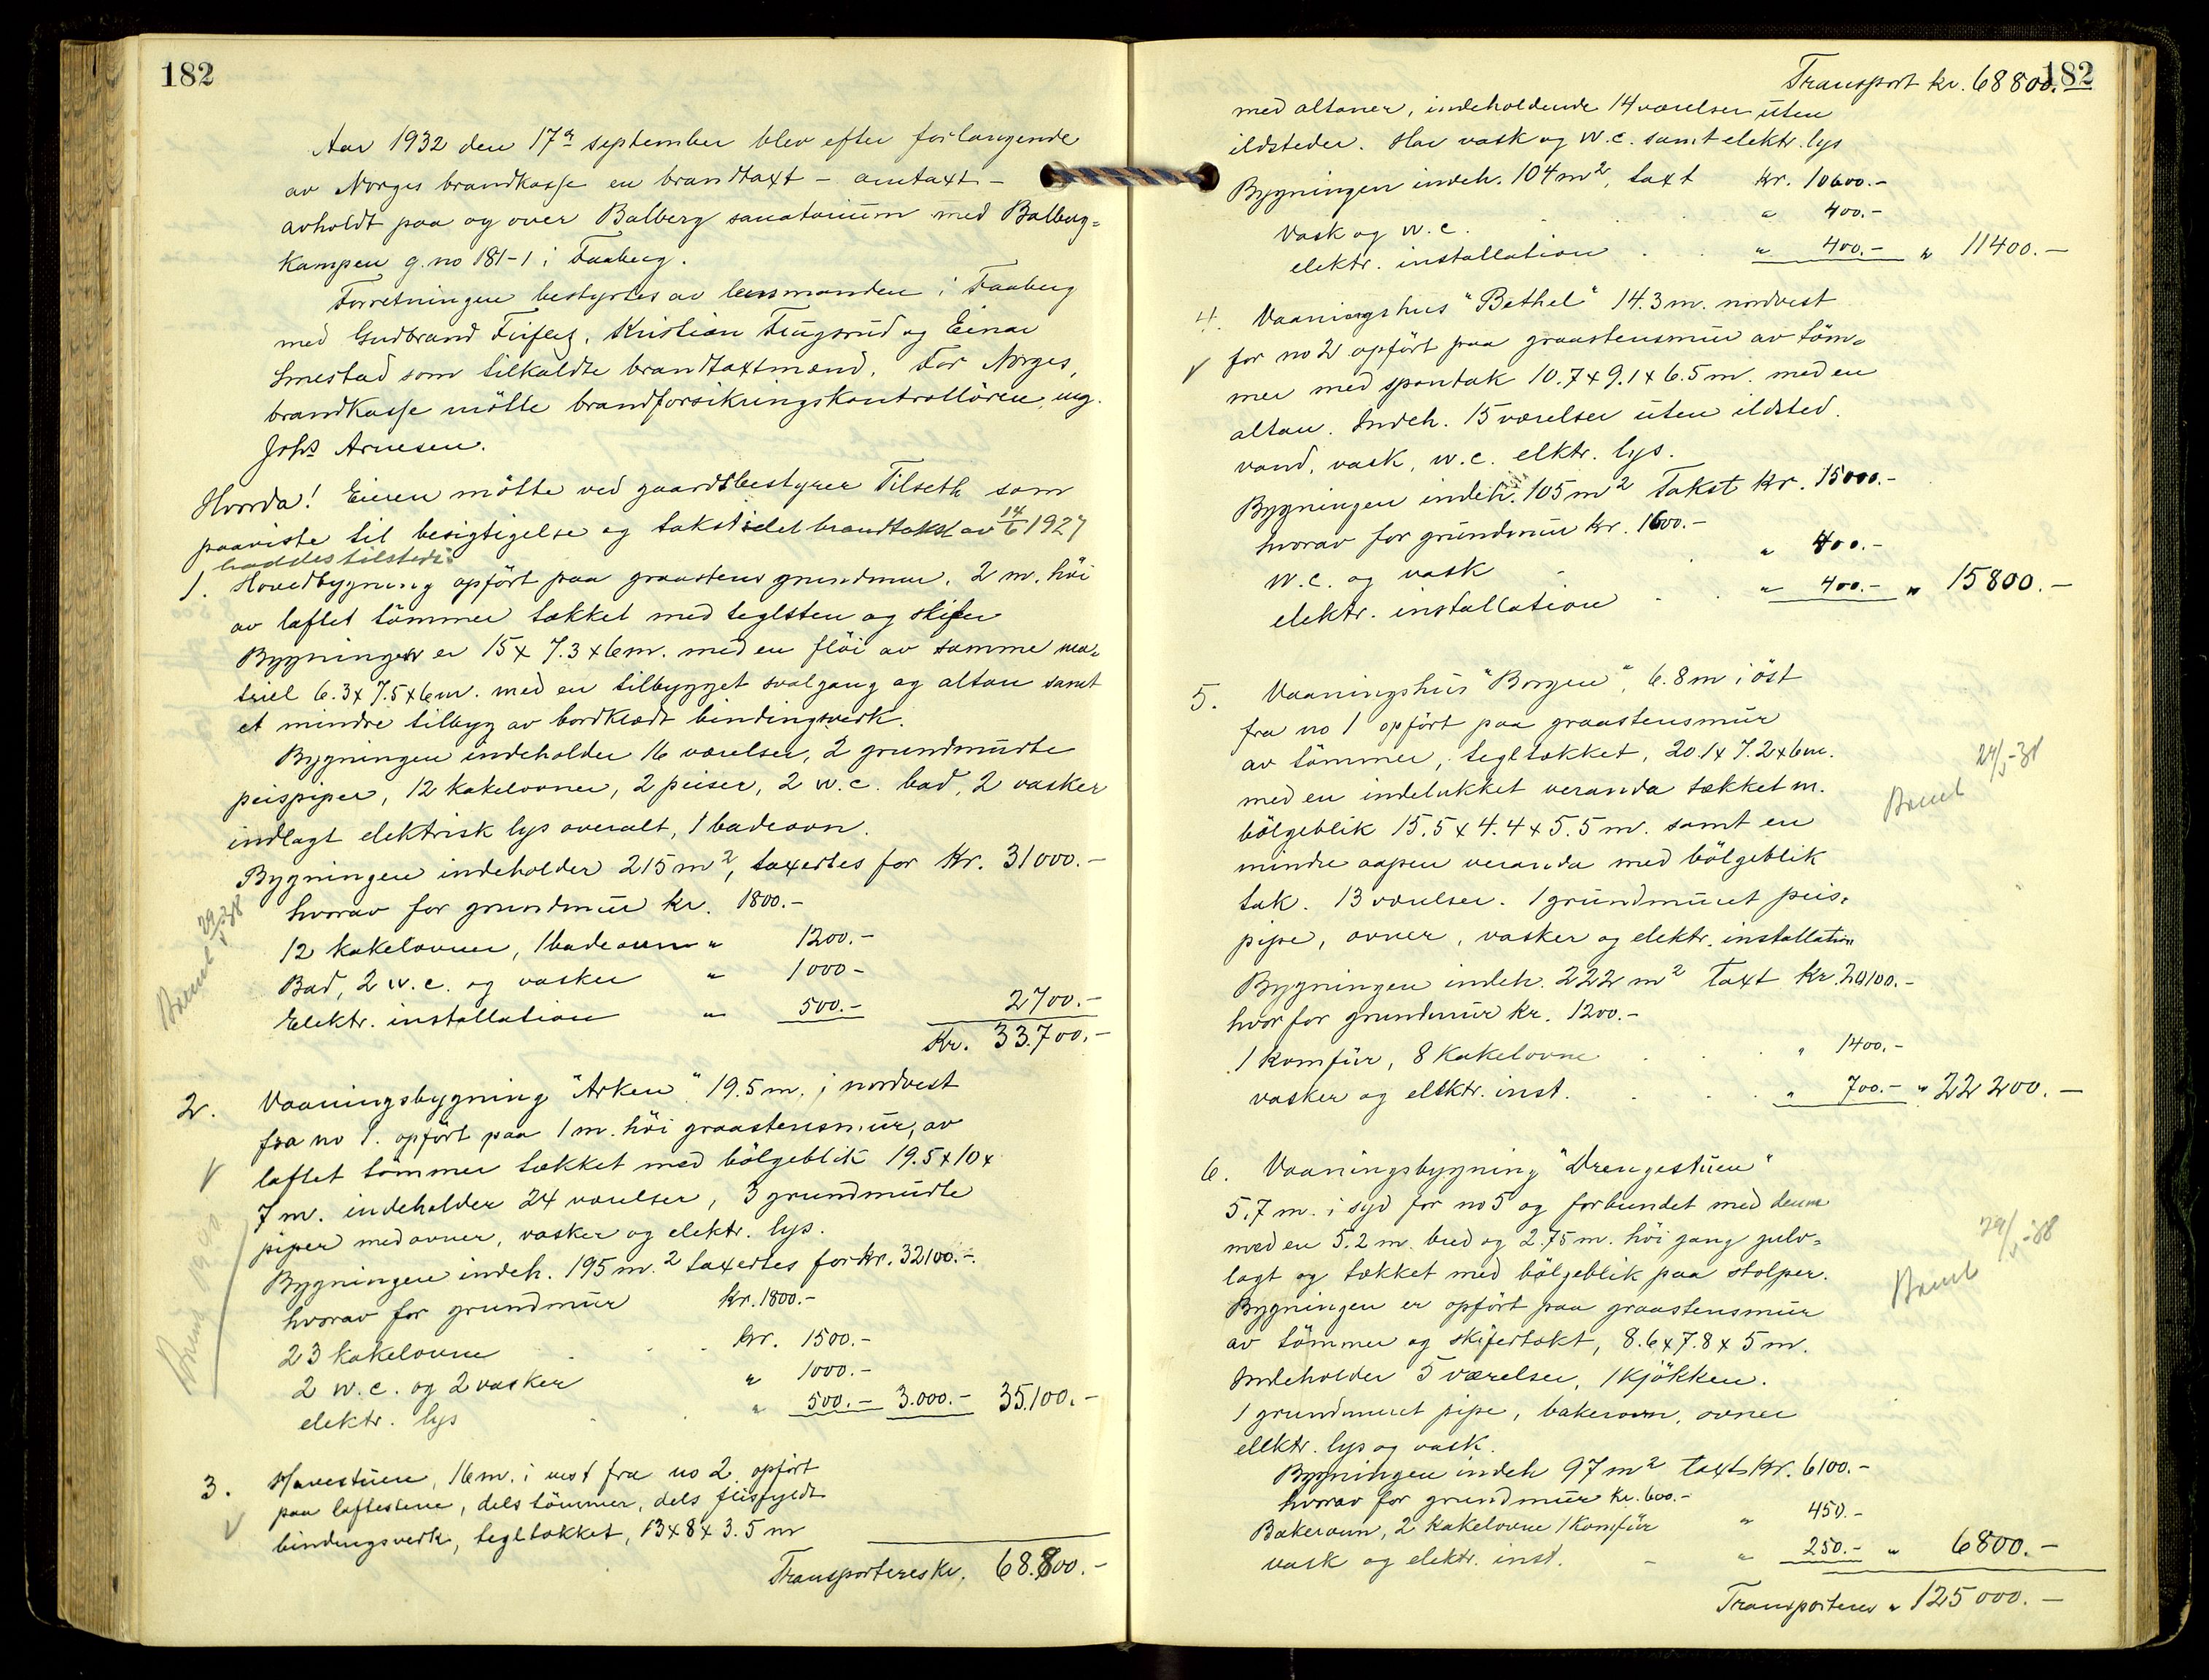 182
Aar 1932 den 17de september blev efter forlangende
av Norges brandkasse en brandtaxt - amtaxt -
avholdt paa og over Balberg sanatorium med Balberg=
kampen g.no 181-1 i Faaberg.
Forretningen bestyrtes av lensmanden i Faaberg
med Gudbrand Kristian og Einar
Smestad som tilkaldte brandtaxtmænd. For Norges
brandkasse mötte brandforsikringskontrollören, ing.
Johs Arnesen.
Hvorda! Eieren mötte ved gaardsbestyrer Tilseth som
paaviste til besigtigelse og takst idet brandtakst av 14/6 1927
haddes tilstede.
1. Hovedbygning opfört paa graastens grundmur. 2 m. höi
av laftet tömmer tækket med teglsten og skifer
Bygningen er 15 x 7.3 x 6 m. med en flöi av samme ma=
triel 6.3 x 7.5 x 6 m. med en tilbygget svalgang og altan samt
et mindre tilbyg av bordklædt bindingsverk.
Bygningen indeholder 16 værelser, 2 grundmurte
peispiper, 12 kakelovner, 2 peiser, 2 w.c. bad, 2 vasker
indlagt elektrisk lys overalt, 1 badeovn.
Bygningen indeholder 215 m², taxertes for Kr. 31000.-
hvorav for grundmur kr. 1800.-
12 kakelovner, 1 badeovn " 1200.-
Bad, 2 w.c. og vasker " 1000-
Elektr. installation " 500.- 2700.-
Kr. 33.700.-
Brendt 29/5-38
2. Vaaningsbygning "Arken" 19.5 m. i nordvest
fra no 1. opfört paa 1 m. höi graastensmur, av
laftet tömmer tækket med bölgeblik 19.5 x 10 x
7 m. indeholder 24 værelser, 3 grundmurte
piper med ovner, vasker og elektr. lys.
Bygningen indeh. 195 m.² taxertes for kr. 32100.-
hvorav for grundmur kr. 1800.-
23 kakelovne kr. 1500.-
2 w.c. og 2 vasker " 1000.-
elektr. lys " 500.- 3.000.- 35.100.-
3. Havestuen, 16 m. i vest fra no 2 opfört
paa laftestene, dels tömmer, dels flisfyldt
bindingsverk, tegltækket, 13 x 8 x 3.5 m
Transporteres kr. 68.800.-
182
Transport kr. 68800.-
med altaner, indeholdende 14 værelser uten
ildsteder. Har vask og w.c. samt elektr. lys
Bygningen indeh. 104 m², taxt Kr. 10600.-
Vask og w.c. " 400.-
elektr. installation " 400.- " 11400.-
4. Vaaningshus "Bethel" 14.3 m. nordvest
for no 2 opfört paa graastensmur av töm=
mer med spontak 10.7 x 9.1 x 6.5 m. med en
altan. Indeh. 15 værelser uten ildsted.
vand, vask, w.c. elktr. lys.
Bygningen indeh. 105 m² Takst kr. 15000.-
hvorav for grundmur kr. 1600.-
W.c. og vask " 400.-
elektr. installation " 400.- " 15800.-
5. Vaaningshus "Borgen", 6.8 m i öst
fra no 1 opfört paa graastensmur
av tömmer, tegltækket, 20.1 x 7.2 x 6 m.
med en indelukket veranda tækket m.
bölgeblik 15.5 x 4.4 x 5.5 m. samt en
mindre aapen veranda med bölgeblik
tak. 13 værelser. 1 grundmuret peis=
pipe, ovner, vasker og elektr. installation
Bygningen indeh. 222 m² Taxt kr. 20100.-
hvor for grundmur kr. 1200.-
1 komfür, 8 kakelovne " 1400.-
vasker og elektr. inst. " 700.- " 22 200.-
Brent 29/5-38
6. Vaaningsbygning "Drengestuen"
5.7 m. i syd for no 5 og forbundet med denne
med en 5.2 m. bred og 2.75 m. höi gang gulv=
lagt og tækket med bölgeblik paa stolper.
Bygningen er opfört paa graastensmur
av tömmer og skifertækt, 8.6 x 7.8 x 5 m.
Indeholder 5 værelser, 1 kjökken.
1 grundmuret pipe, bakerovn, ovner
elektr. lys og vask.
Bygningen indeh 97 m² taxt Kr. 6100.-
hvorav for grundmur kr. 600.-
Bakerovn, 2 kakelovne 1 Komfür " 450.-
vask og elektr. inst. " 250.- " 6800.-
Brent 29/5-38
Transporteres " 125000.-